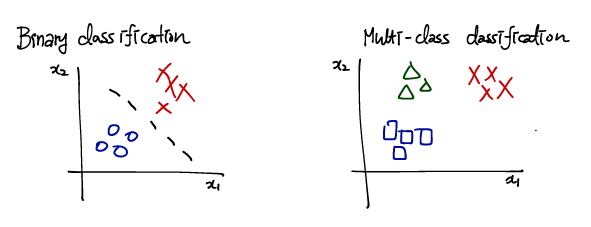 Binary classification
Multi-class classification
x₂
x₁
x₂
x₁